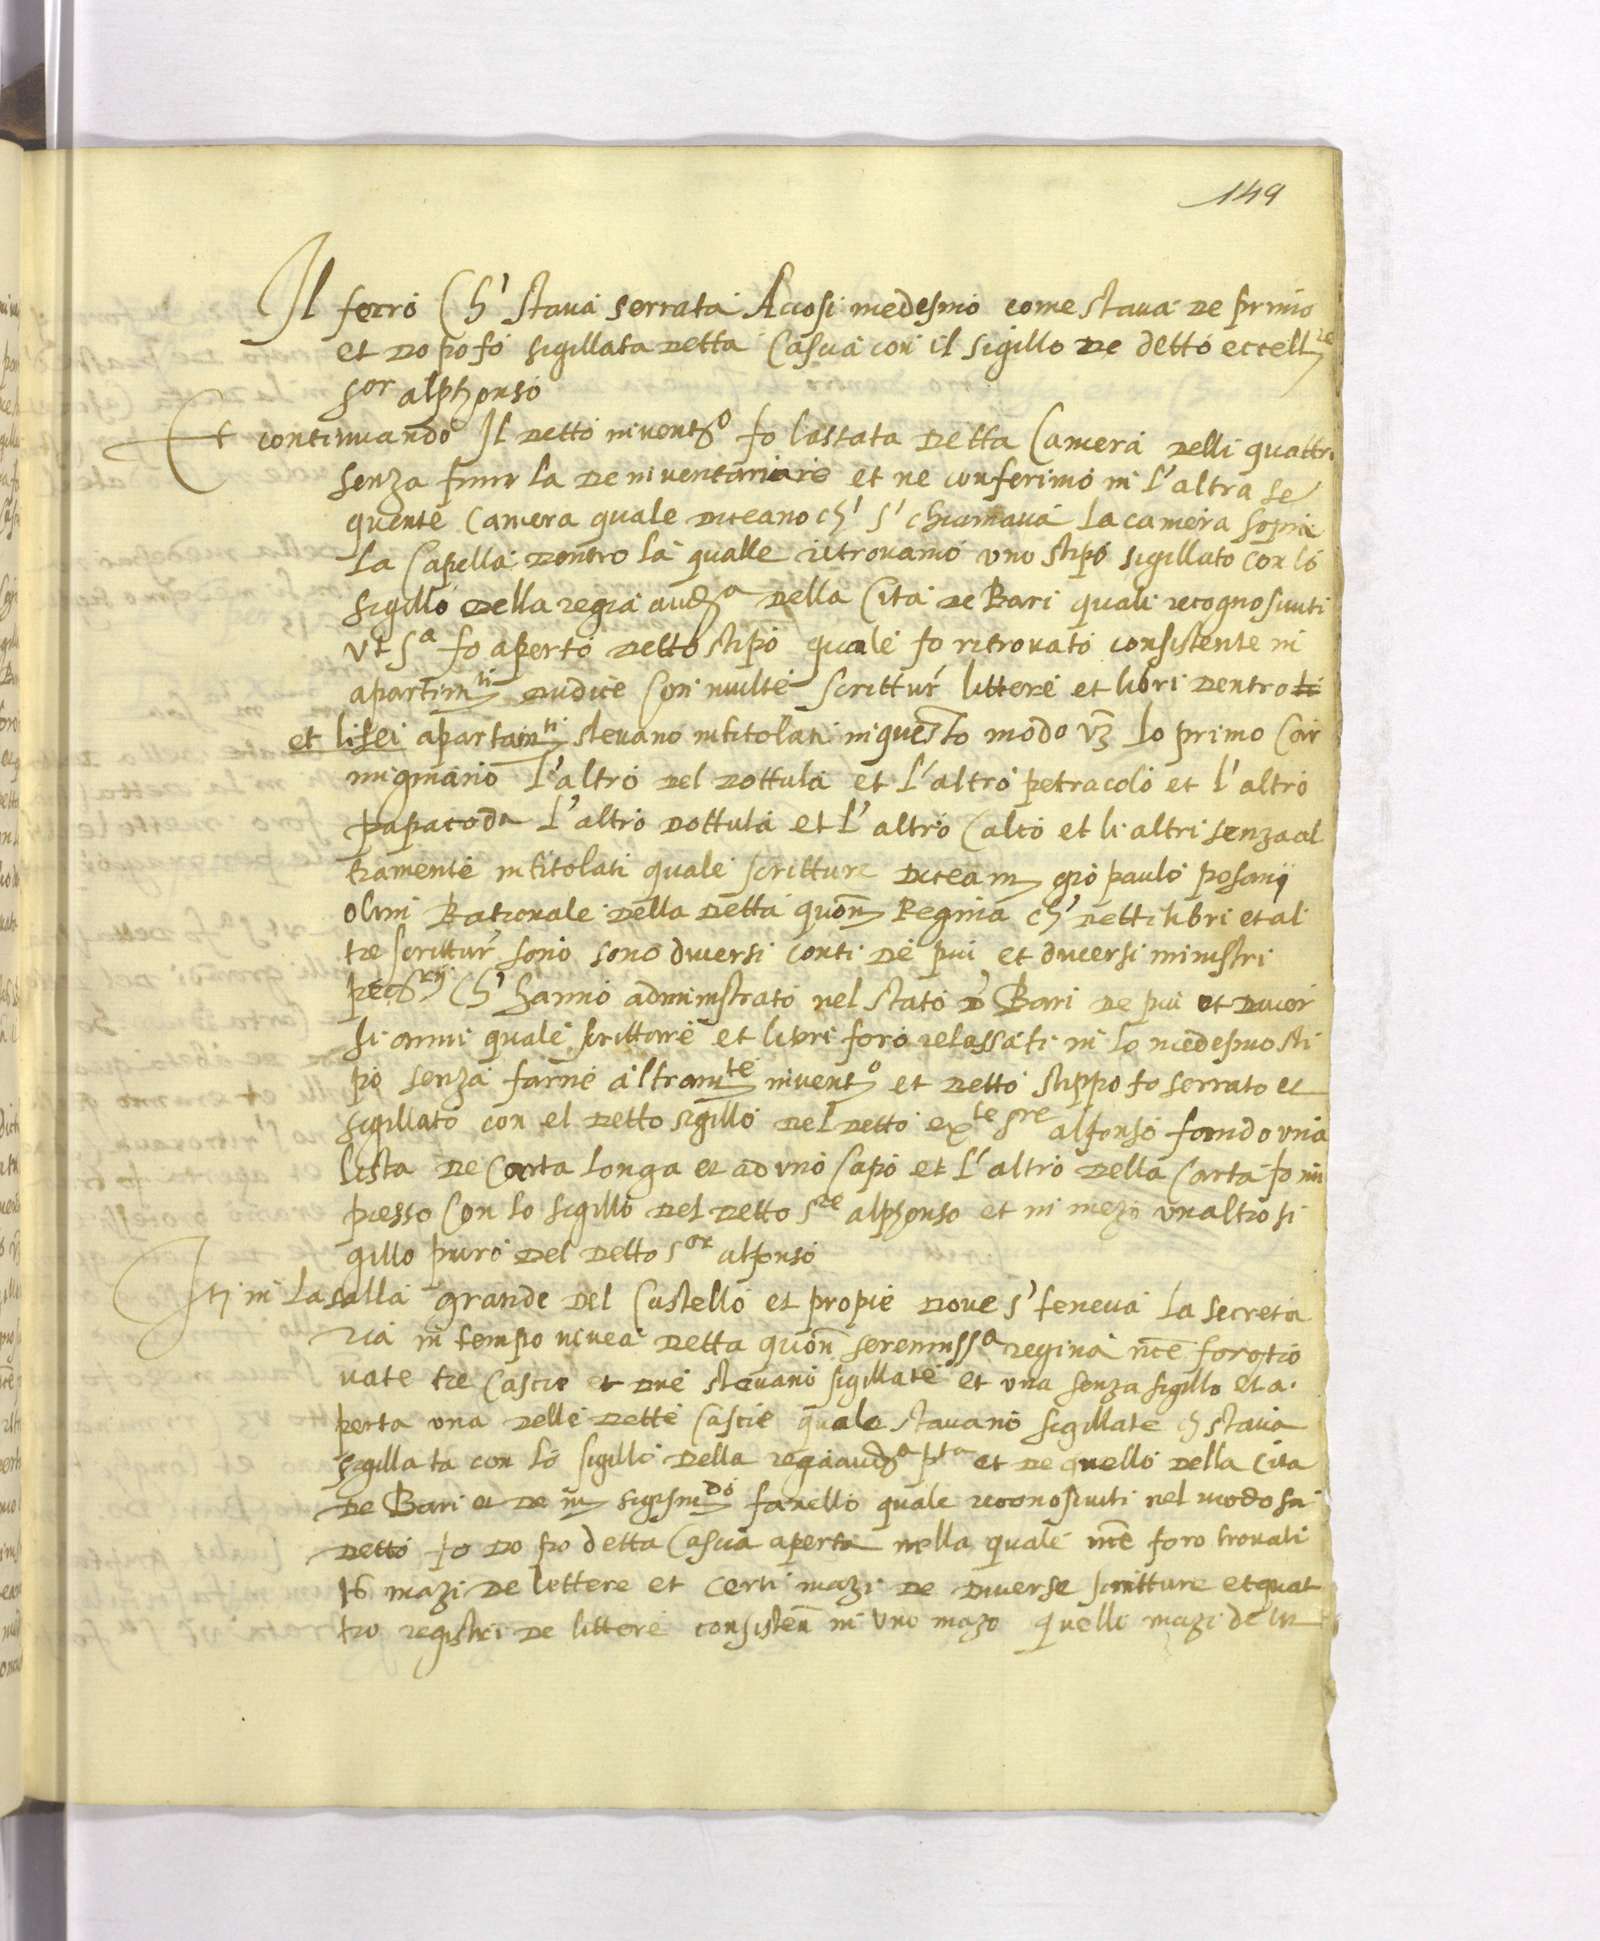 149
Il ferro Ch' stava serrata Accosi medesmo come stava de primo
et dopo fo sigillata detta Cascia con il sigillo de detto eccell.te
s.or alphonso
Et continuando Il detto invent.o fo lassata detta Camera delli quattri
senza finirla de inventariare et ne conferimo in l'altra se
quente Camera quale diceano ch' s' chiamava la camera sopra
la Capella dentro la qualle ritrovamo uno stipo sigillato con lo
sigillo della regia aud.a della Cita de Bari quali recognosciuti
ut s.a fo aperto detto stipo quale fo ritrovato consistente in
apartim.ti dudice con multe scritture littere et libri dentro li
et li sei apartam.ti stevano intitolati in questo modo vz lo primo Car
mignano l'altro del dottula et l'altro petracolo et l'altro
papacoda l'altro dottula et l'altro Calco et li altri senza al
tramente intitolati quale scritture dicea m gio paulo posanij
olim Rationale della detta quon Regina ch' detti libri et al
tre scrittur sono sono diversi conti de piu et diversi ministri
Ch' hanno administrato nel stato d' Bari de piu et diver
si anni quale scritture et libri foro relassati in lo medesmo sti
po senza farne altram.te invent.o et detto stippo fo serrato et
sigillato con el detto sigillo del detto ex.te s.re alfonso fando una
lista de Carta longa et ad uno Capo et l'altro della Carta fo im
presso Con lo sigillo del detto s.re alphonso et in mezo un altro si
gillo puro del detto s.or alfonso
It in la salla grande del Castello et propie dove s' teneva la secreta
ria in tempo vivea detta quon serenissa regina nce foro tro
vate tre Cascie et due stevano sigillate et una senza sigillo et a
perta una delle dette Cascie quale stavano sigillate ch stava
sigillata con lo sigillo della regia aud.a p.ta et de quello della Cita
de Bari et de m sigism.do fanello quale reconosciuti nel modo su
detto fo dopo detta Cascia aperta nella quale nce foro trovati
16 mazi de lettere et certi mazi de diverse scritture et quat
tro registri de littere consisten in uno mazo quelli mazi de lit